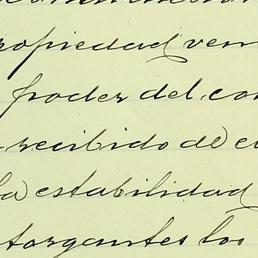 ropiedad ven
poder del con
recibido de e
la estabilidad
torgantes los